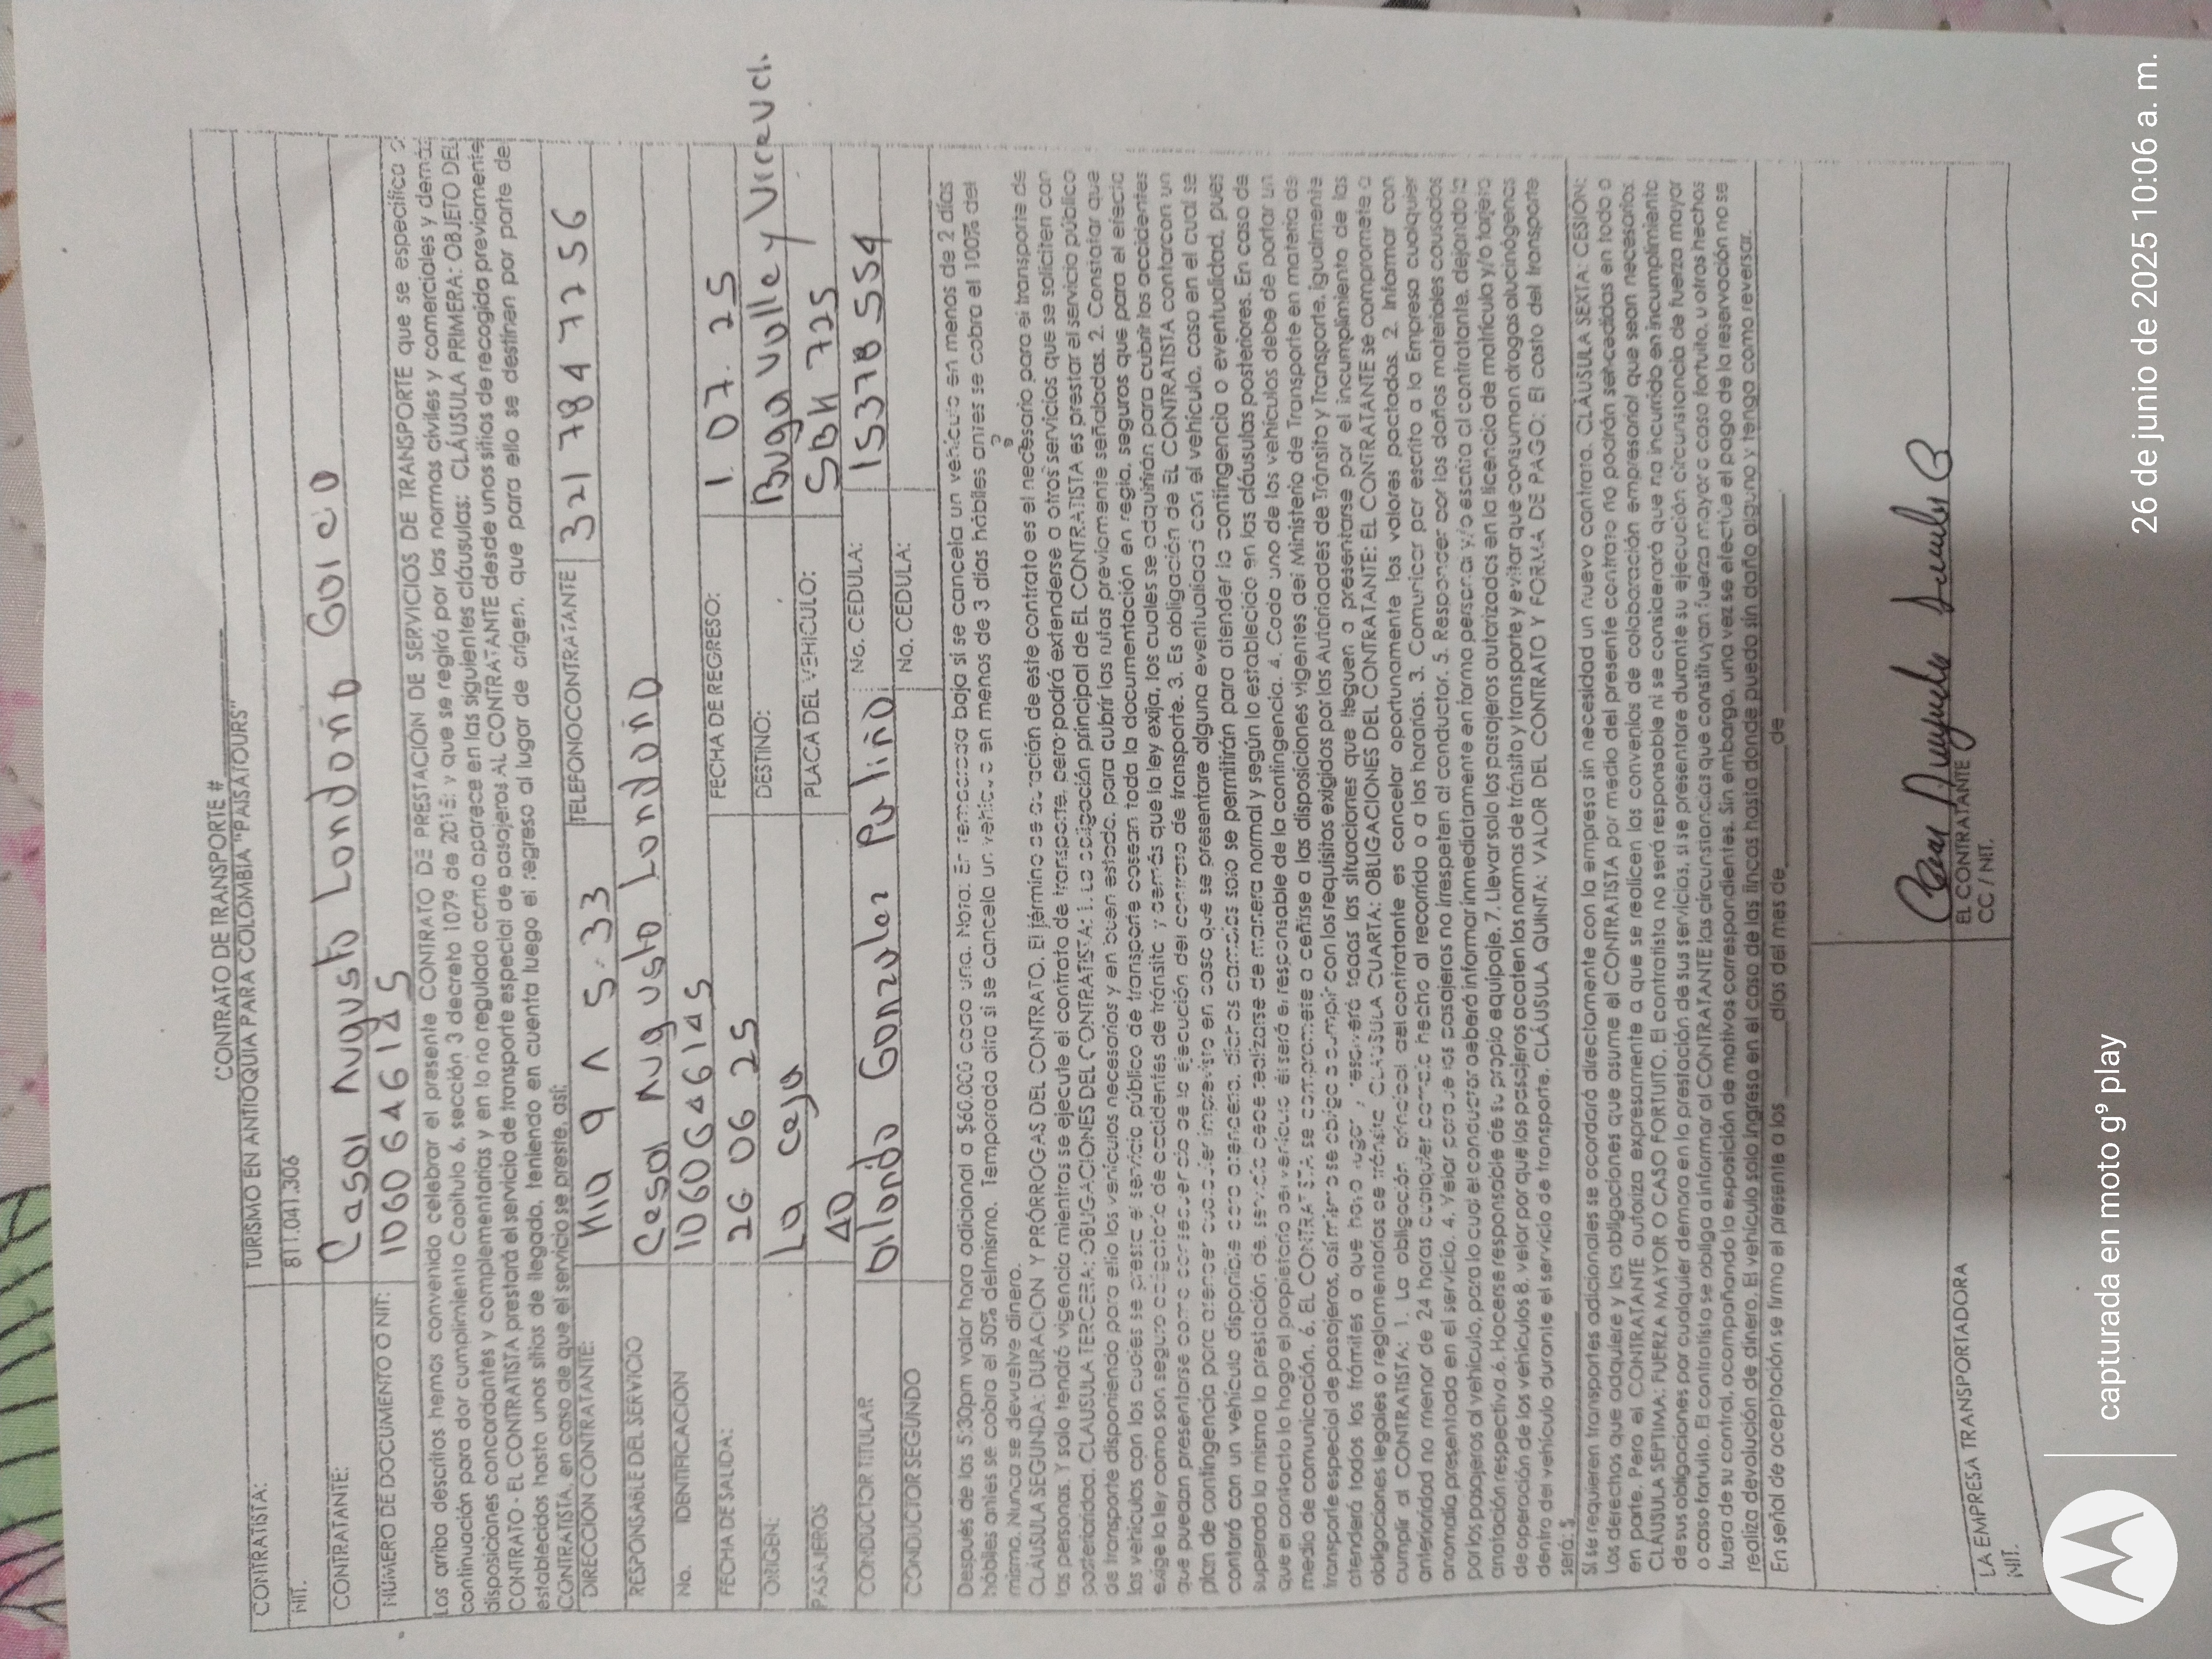 CONTRATO DE TRANSPORTE #
CONTRATISTA: TURISMO EN ANTIOQUIA PARA COLOMBIA "PAISATOURS"
NIT. 811.041.306
CONTRATANTE: Casar Augusto Londoño
NÚMERO DE DOCUMENTO O NIT:
Los arriba descritos hemos convenido celebrar el presente CONTRATO DE PRESTACIÓN DE SERVICIOS DE TRANSPORTE que se específica a
continuación para dar cumplimiento Capitulo 6, sección 3 decreto 1079 de 2015; y que se regirá por las normas civiles y comerciales y demás
disposiciones concordantes y complementarias y en lo no regulado como aparece en las siguientes cláusulas: CLÁUSULA PRIMERA: OBJETO DEL
CONTRATO - EL CONTRATISTA prestará el servicio de transporte especial de pasajeros AL CONTRATANTE desde unos sitios de recogida previamente
establecidos hasta unos sitios de llegada, teniendo en cuenta luego el regreso al lugar de origen, que para ello se destinan por parte de
CONTRATISTA, en caso de que el servicio se preste, así:
DIRECCIÓN CONTRATANTE: TELEFONO CONTRATANTE 321 784 7256
RESPONSABLE DEL SERVICIO Cesar Augusto Londoño
No. IDENTIFICACION
FECHA DE SALIDA: 26 06 25 FECHA DE REGRESO: 1. 07. 25
ORIGEN: La Ceja DESTINO: Buga Valle y
PASAJEROS 40 PLACA DEL VEHICULO: 725
CONDUCTOR TITULAR Gonzalez No. CEDULA: 15378554
CONDUCTOR SEGUNDO No. CEDULA:
Después de las 5:30pm valor hora adicional a $60.000 cada una. Nota: En temporada baja si se cancela un vehículo en menos de 2 días
hábiles antes se cobra el 50% del mismo. Temporada alta si se cancela un vehículo en menos de 3 días hábiles antes se cobra el 100% del
mismo. Nunca se devuelve dinero.
CLÁUSULA SEGUNDA: DURACION Y PRÓRROGAS DEL CONTRATO. El término de duración de este contrato es el necesario para el transporte de
las personas. Y solo tendrá vigencia mientras se ejecute el contrato de transporte, pero podrá extenderse a otros servicios que se soliciten con
posterioridad. CLAUSULA TERCERA: OBLIGACIONES DEL CONTRATISTA: 1. La obligación principal de EL CONTRATISTA es prestar el servicio público
de transporte disponiendo para ello los vehículos necesarios y en buen estado, para cubrir las rutas previamente señaladas. 2. Constatar que
los vehículos con los cuales se presta el servicio público de transporte posean toda la documentación en regla, seguros que para el efecto
exige la ley como son seguro obligatorio de accidentes de tránsito y demás que la ley exija, los cuales se adquirirán para cubrir los accidentes
que puedan presentarse como consecuencia de la ejecución del contrato de transporte. 3. Es obligación de EL CONTRATISTA contar con un
plan de contingencia para atender cualquier imprevisto en caso que se presentare alguna eventualidad con el vehículo, caso en el cual se
contará con un vehículo disponible para atenderla, dichos cambios solo se permitirán para atender la contingencia o eventualidad, pues
superada la misma la prestación del servicio debe realizarse de manera normal y según lo establecido en las cláusulas posteriores. En caso de
que el contacto lo haga el propietario del vehículo él será el responsable de la contingencia. 4. Cada uno de los vehículos debe de portar un
medio de comunicación. 6. EL CONTRATISTA se compromete a ceñirse a las disposiciones vigentes del Ministerio de Transporte en materia de
transporte especial de pasajeros, así mismo se obliga a cumplir con los requisitos exigidos por las Autoridades de Tránsito y Transporte. Igualmente
atenderá todos los trámites a que haya lugar y resolverá todas las situaciones que lleguen a presentarse por el incumplimiento de las
obligaciones legales o reglamentarias de tránsito. CLAUSULA CUARTA: OBLIGACIONES DEL CONTRATANTE: EL CONTRATANTE se compromete a
cumplir al CONTRATISTA: 1. La obligación principal del contratante es cancelar oportunamente los valores pactados. 2. Informar con
anterioridad no menor de 24 horas cualquier cambio hecho al recorrido o a los horarios. 3. Comunicar por escrito a la Empresa cualquier
anomalía presentada en el servicio. 4. Velar para que los pasajeros no irrespeten al conductor. 5. Responder por los daños materiales causados
por los pasajeros al vehículo, para lo cual el conductor deberá informar inmediatamente en forma personal y/o escrita al contratante, dejando la
anotación respectiva. 6. Hacerse responsable de su propio equipaje. 7. Llevar solo los pasajeros autorizados en la licencia de matrícula y/o tarjeta
de operación de los vehículos 8. velar por que los pasajeros acaten las normas de tránsito y transporte y evitar que consuman drogas alucinógenas
dentro del vehículo durante el servicio de transporte. CLÁUSULA QUINTA: VALOR DEL CONTRATO Y FORMA DE PAGO: El costo del transporte
será: $
Si se requieren transportes adicionales se acordará directamente con la empresa sin necesidad un nuevo contrato. CLÁUSULA SEXTA: CESIÓN:
Los derechos que adquiere y las obligaciones que asume el CONTRATISTA por medio del presente contrato no podrán ser cedidas en todo o
en parte. Pero el CONTRATANTE autoriza expresamente a que se realicen los convenios de colaboración empresarial que sean necesarios.
CLÁUSULA SEPTIMA: FUERZA MAYOR O CASO FORTUITO. El contratista no será responsable ni se considerará que no incurrido en incumplimiento
de sus obligaciones por cualquier demora en la prestación de sus servicios, si se presentare durante su ejecución circunstancia de fuerza mayor
o caso fortuito. El contratista se obliga a informar al CONTRATANTE las circunstancias que constituyan fuerza mayor o caso fortuito, u otros hechos
fuera de su control, acompañando la exposición de motivos correspondientes. Sin embargo, una vez se efectúe el pago de la reservación no se
realiza devolución de dinero. El vehículo solo ingresa en el caso de las fincas hasta donde pueda sin daño alguno y tenga como reversar.
En señal de aceptación se firma el presente a los ______ días del mes de ______ de ______.
LA EMPRESA TRANSPORTADORA EL CONTRATANTE
NIT. CC / NIT.
capturada en moto g⁹ play
26 de junio de 2025 10:06 a. m.